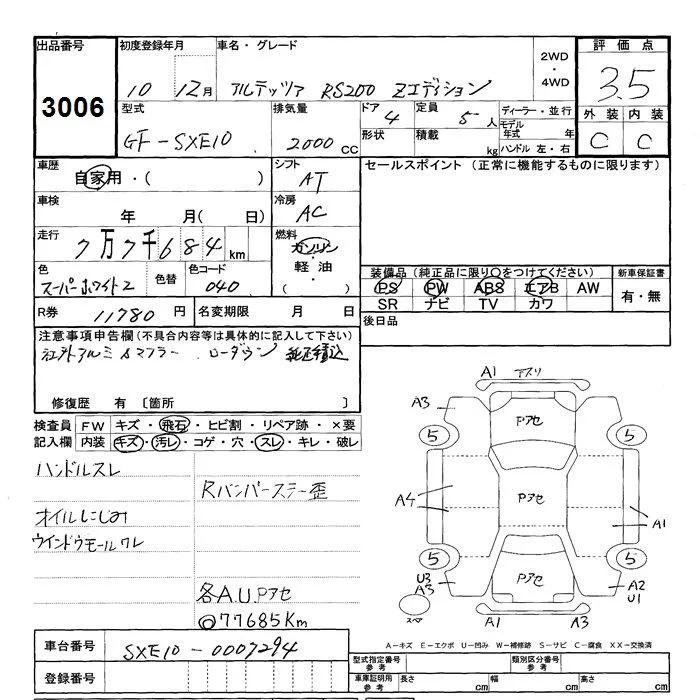 出品番号 初度登録年月 車名・グレード 2WD・4WD 評価点
3006 10 12月 アルテッツァ RS200 Zエディション 3.5
型式 排気量 ドア 4 定員 5人 ディーラー・並行 外装 内装
GF-SXE10 2000 CC 形状 積載 kg モデル年式 年 C C
ハンドル 左・右
車歴 シフト セールスポイント (正常に機能するものに限ります)
自家用・( ) AT
車検 冷房
年 月( 日) AC
走行 燃料
7万7千684km ガソリン・軽油・( )
色 色替 色コード 装備品(純正品に限り○をつけてください) 新車保証書
スーパーホワイト2 040 PS PW ABS エアB AW 有・無
SR ナビ TV カワ
R券 11780円 名変期限 月 日 後日品
注意事項申告欄(不具合内容等は具体的に記入して下さい)
社外アルミ & マフラー ローダウン 純正積込
修復歴 有〔箇所 〕
検査員 FW キズ・飛石・ヒビ割・リペア跡・×要
記入欄 内装 キズ・汚レ・コゲ・穴・スレ・キレ・破レ
ハンドルスレ
Rバンパーステー歪
オイルにじみ
ウインドウモールワレ
各A.U.Pアセ
◎77685Km
A1 アスリ
A3 Pアセ
5 5
A4 Pアセ A1
5 5
U3 A3 Pアセ A2 U1
スペア A1 A3
車台番号 SXE10-0007294
A-キズ E-エクボ U-凹み W-補修跡 S-サビ C-腐食 XX-交換済
登録番号
型式指定番号 参考 類別区分番号 参考
車庫証明用 参考 長さ cm 幅 cm 高さ cm